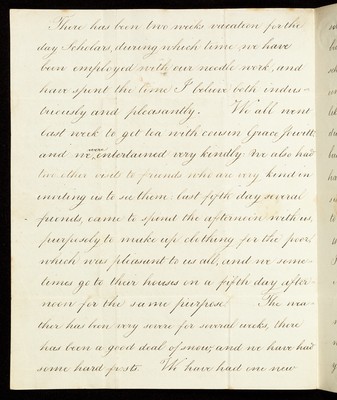 There has been two weeks vacation for the
day Scholars, during which time we have
been employed with our needle work, and
have spent the time I believe both indus-
triously and pleasantly. We all went
last week to get tea with cousin Grace Jewitt
and we were entertained very kindly We also had
two other visits to friends who are very kind in
inviting us to see them: last fifth day several
friends, came to spend the afternoon with us,
purposely to make up clothing for the poor!
which was pleasant to us all, and we some-
times go to their houses on a fifth day after-
noon for the same purpose. The wea-
ther has been very severe for several weeks, there
has been a good deal of snow, and we have had
some hard frosts. We have had one new